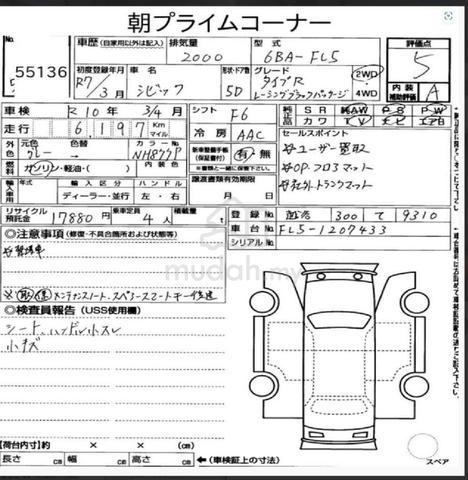 朝プライムコーナー
No.
55136
車歴 (自家用以外は記入)
排気量
2000
型式
6BA-FL5
評価点
5
初度登録年月
R7年
3月
車名
シビック
形状・ドア数
5D
グレード
タイプR
レーシングブラックパッケージ
2WD
4WD
内装
補助評価
A
車検
R10年 3/4月
シフト
F6
純正品
SR AW PS PW
カワ TV ナビ エアB
走行
6,197
Km
マイル
冷房
AAC
セールスポイント
外色
元色
グレー
色替
カラーNo
NH877P
新車整備手帳
(保証書付)
有・無
☆ユーザー買取
燃料
ガソリン・軽油・( )
☆OPフロアマット
輸入車用
輸入区分
ハンドル
ディーラー・並行
左・右
譲渡書類有効期限
月 日
☆社外トランクマット
リサイクル預託金
17880円
乗車定員
4人
積載量
登録No
300 て 9310
車台No
FL5-1209433
シリアルNo
◎注意事項 (修復・不具合箇所および状態等)
mudah.my
メンテナンスノート、スペアスマートキー後送
◎検査員報告 (USS使用欄)
シート、ハンドル小スレ
小キズ
【荷台内寸】 約 × × (cm)
長さ cm 幅 cm 高さ cm
←(車検証上の寸法)
スペア